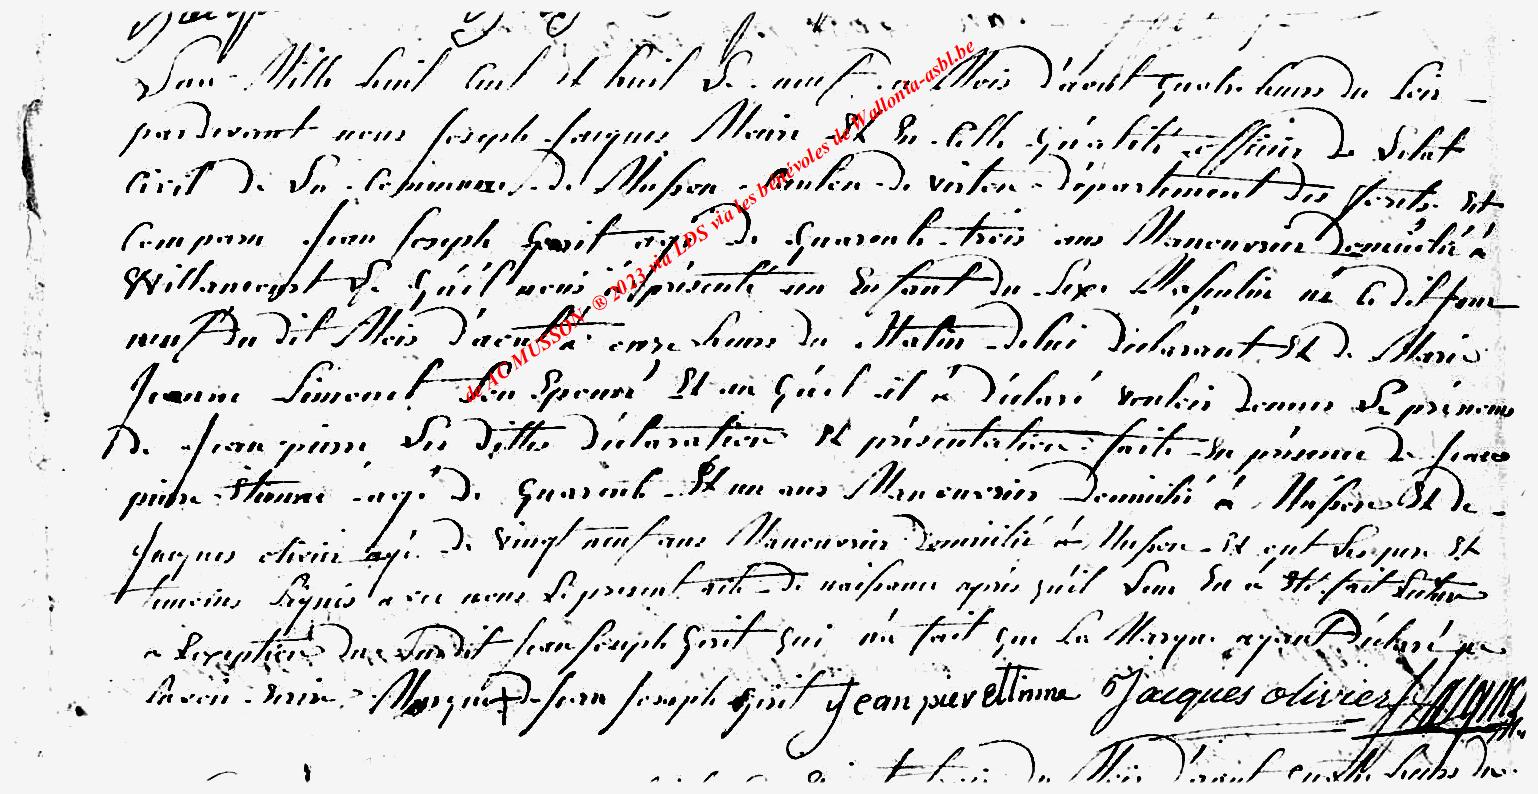 L'an Mille huit Cent et huit Le neuf du Mois d'aout quatre heures du soir
pardevant nous Joseph Jaques Maire Et En Cette qualité officier de L'etat
Civil de La Commune de Musson Canton de virton département des forêts Est
Comparu Jean Joseph agé de quarente trois ans Manouvrier domicilié à
Willancourt Le quél nous à présenté un Enfant du Séxe Masculin né Ce dit jour
neuf du dit Mois d'aout à onze heures du Matin de lui déclarant Et de Marie
Jeanne Simonet Son Epouse Et au quél il à déclaré vouloir donner Le prénoms
de Jean pierre Les dittes déclaration Et présentation faite En présence de Jean
pierre Etienne agé de quarente Et un ans Manouvrier domicilié à Musson Et de
Jaques olivier agé de vingt neuf ans Manouvrier domicilié à Musson Et ont Les pere Et
temoins Signés avec nous Le present acte de naissance apres qu'il Leur En à Eté fait Lecture
a Exception du Susdit Jean Joseph qui n'a fait que La Marque ayant déclaré ne
Savoir Ecrire Marque de Jean Joseph Jean pierettinne Jacques olivier Jaques
du Mois d'aout quatre heures du
de AC MUSSON ® 2023 via LDS via les bénévoles de Wallonia-asbl.be